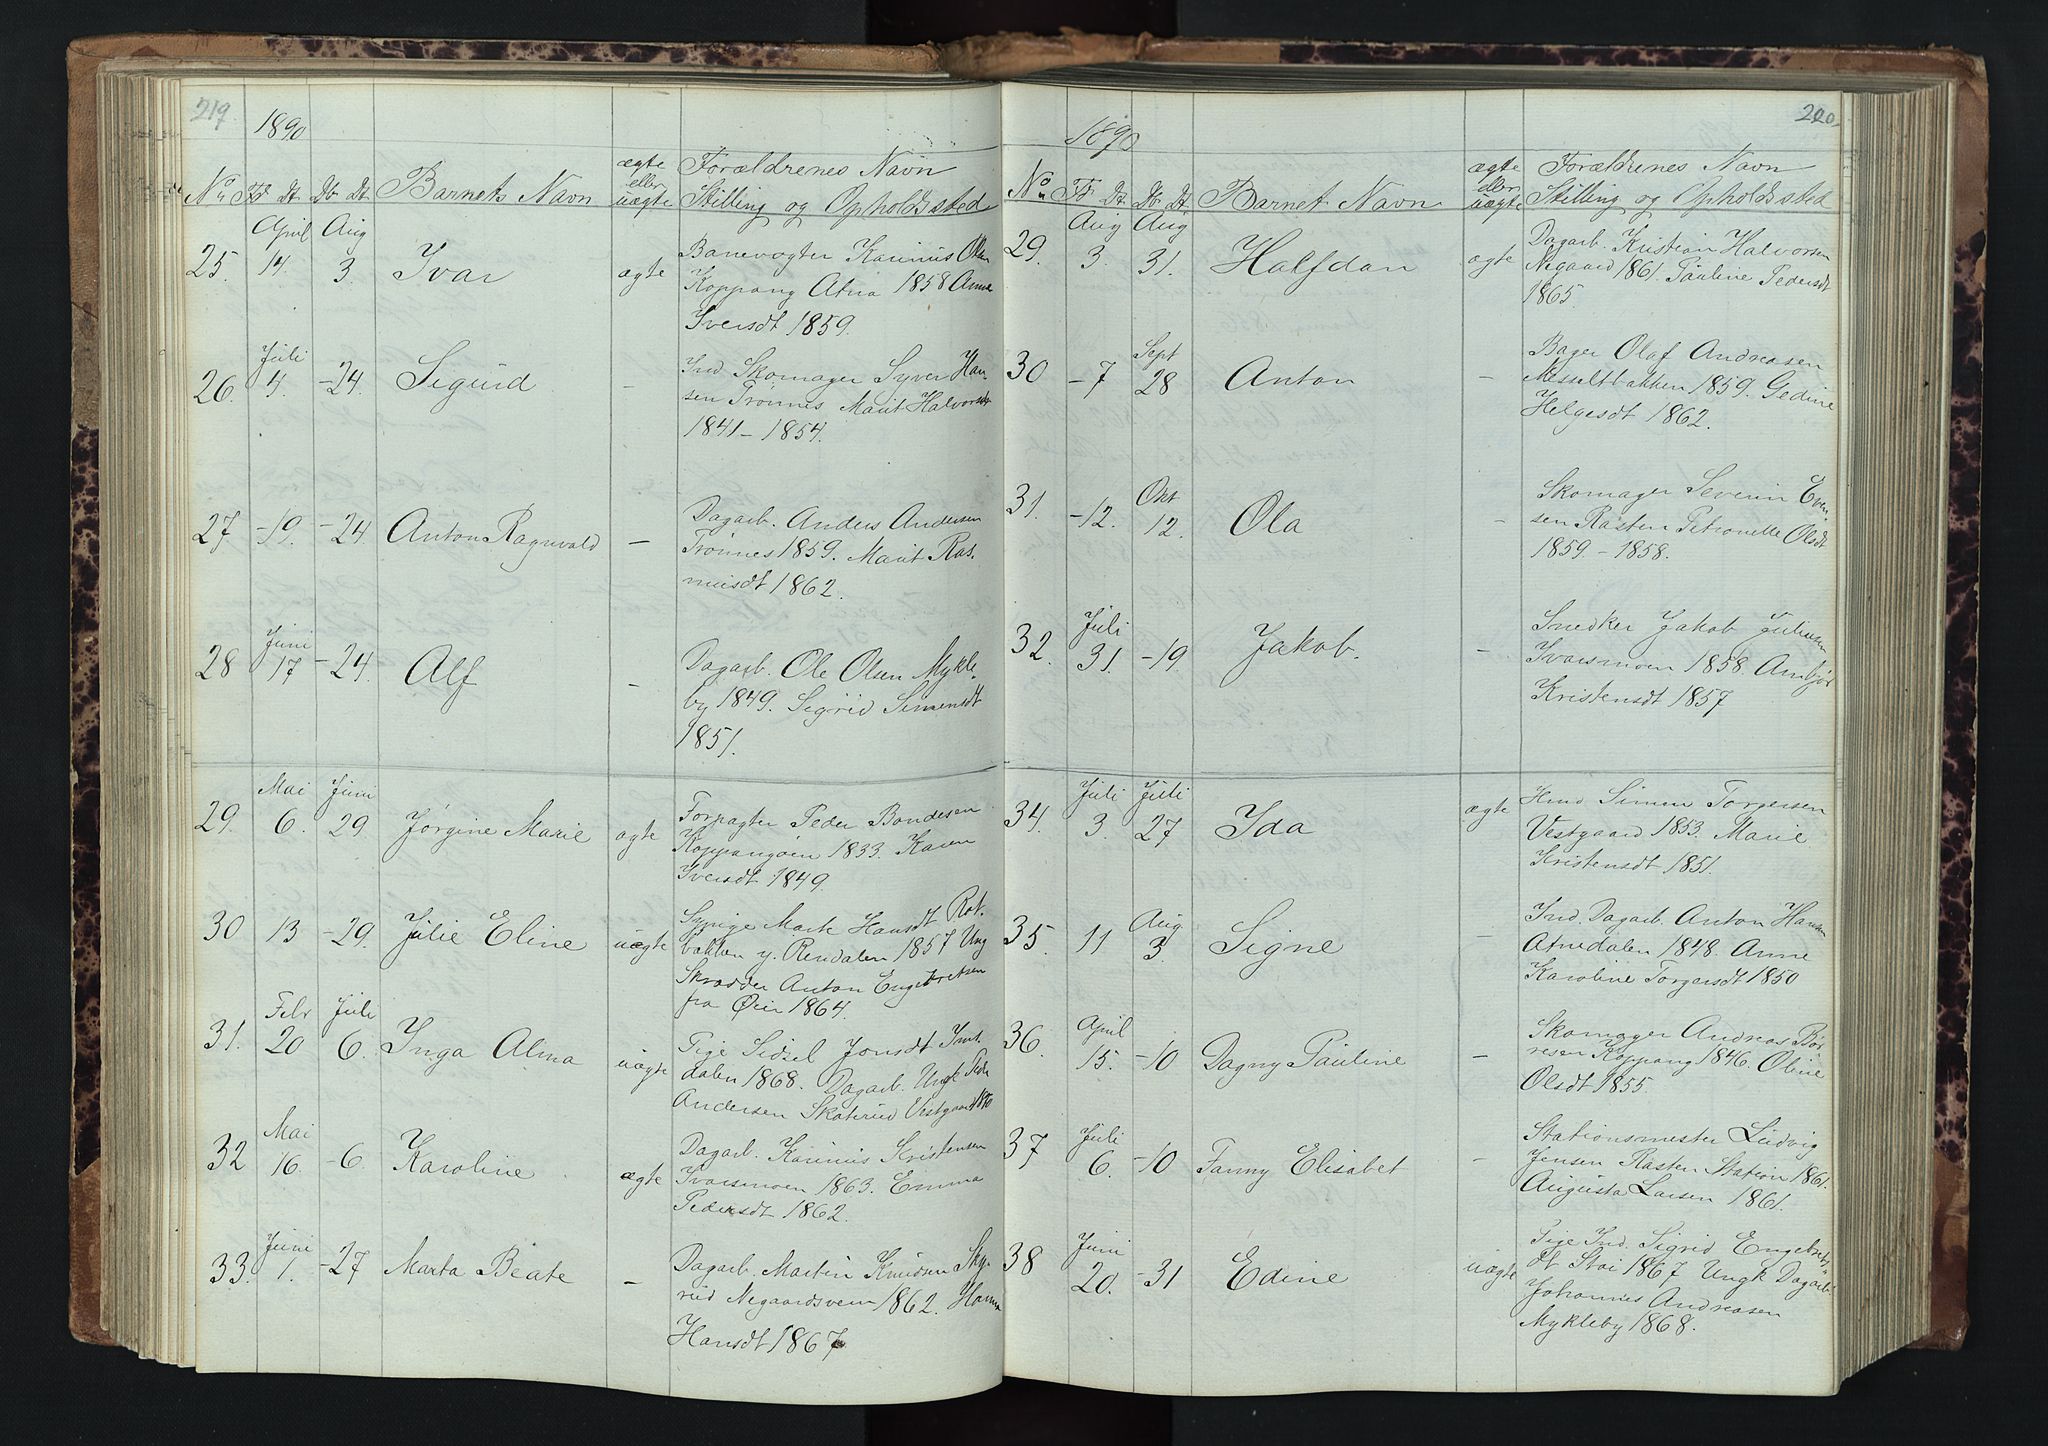 219.
1890
No. Fd. Dt. Db Dt. Barnets Navn ægte eller uægte Forældrenes Navn Stilling og Opholdssted
25. April 14. Aug 3. Ivar ægte Banevogter Karinus Olsen
Koppang Atna 1858 Anna
Iversdt 1859.
26. Juli 4. -24. Sigurd - Ind. Skomager Syver Han-
sen Trønnes Marit Halvorsdt
1841-1854.
27 -19. -24 Anton Ragnvald - Dagarb. Anders Andersen
Trønnes 1859. Marit Ras-
musdt 1862.
28 Juni 17 -24. Alf - Dagarb. Ole Olsen Mykle-
by 1849. Sigrid Simensdt
1851.
29. Mai 6. Juni 29. Jørgine Marie ægte Forpagter Peder Bondesen
Koppangoen 1833. Karen
Iversdt 1849.
30 13 -29. Julie Eline uægte Sypige Marte Hansdt Rot-
bakken y. Rendalen 1857 Ung
Skrædder Anton Engebretsen
fra Øier 1864.
31. Febr 20 Juli 6. Inga Alma uægte Pige Sidsel Jonsdt Imt-
dalen 1868. Dagarb. Ungk Peder
Andersen Skaterud Vestgaard 1870
32 Mai 16. -6. Karoline ægte Dagarb. Karinus Kristensen
Ivarsmoen 1863. Emma
Pedersdt 1862.
33. Juni 1. -27 Marta Beate - Dagarb. Martin Knudsen Sky-
rud Negaardsveen 1862. Hanna
Hansdt 1867
220.
1890
No. Fd. Dt. Db Dt. Barnets Navn ægte eller uægte Forældrenes Navn Stilling og Opholdssted
29. Aug 3. Aug 31. Halfdan ægte Dagarb. Kristian Halvorsen
Negaard 1861. Pauline Pedersdt
1865.
30 -7 Sept 28 Anton - Bager Olaf Andreasen
Messeltbakken 1859. Gedine
Helgesdt 1862.
31. -12. Okt 12. Ola - Skomager Severin Even-
sen Rasten Petronelle Olsdt
1859-1858.
32. Juli 31. -19. Jakob. - Snedker Jakob Juliusen
Ivarsmoen 1858. Ambjør
Kristensdt 1857
34. Juli 3. Juli 27 Ida ægte Hmd Simen Torgersen
Vestgaard 1853. Marie
Kristensdt 1851.
35. 11 Aug 3. Signe - Ind. Dagarb. Anton Hansen
Atnedalen 1848. Anne
Karoline Torgersdt 1850
36. April 15. -10 Dagny Pauline - Skomager Andreas Bør-
resen Koppang 1846. Oline
Olsdt 1855.
37 Juli 6. -10 Fanny Elisabet - Stationsmester Ludvig
Jensen Rasten Station 1861.
Augusta Larsen 1861.
38 Juni 20. -31 Edine uægte Pige Ind. Sigrid Engebrets-
dt Stai 1867 Ungk Dagarb.
Johannes Andreasen
Mykleby 1868.